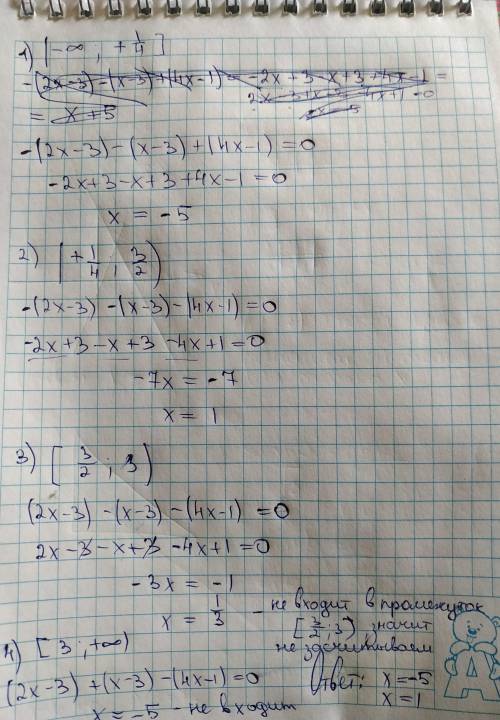 1) [-∞ ; +1/4]
-(2x-3)-(x-3)+(4x-1) = -2x+3-x+3+4x-1 =
= x+5
-(2x-3)-(x-3)+(4x-1)=0
-2x+3-x+3+4x-1=0
x = -5
2) [+1/4 ; 3/2)
-(2x-3)-(x-3)-(4x-1)=0
-2x+3-x+3-4x+1=0
-7x = -7
x = 1
3) [3/2 ; 3)
(2x-3)-(x-3)-(4x-1)=0
2x-3-x+3-4x+1=0
-3x = -1
x = 1/3 - не входит в промежуток
[3/2 ; 3) значит
не засчитываем
4) [3 ; +∞)
(2x-3)+(x-3)-(4x-1)=0
x = -5 - не входит
Ответ: x=-5
x=1